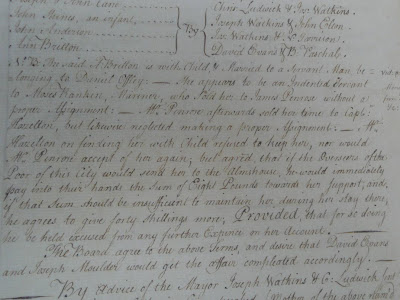 Joseph & Ann Lam
John Stones, an infant
John Anderson
Ann Britton
By
Chris. Ludwick & Jos. Watkins.
Joseph Watkins & John Elton
Jos. Watkins & Jos. Harrison
David Evans & B. Paschal.
NB. The said A. Britton is with Child & Married to a Servant Man, be-
longing to Daniel Offley — She appears to be an Indented Servant
to Moses Rankin, Mariner, who Sold her to James Penrose without a
proper Assignment: — Mr. Penrose afterwards sold her time to Captn.
Hazelton, but likewise neglected making a proper Assignment: — Mr.
Hazelton on finding her with Child refused to keep her, nor would
Mr. Penrose accept of her again; but agreed, that if the Overseers of the
Poor of this City would send her to the Almshouse, he would immediately
pay into their hands the Sum of Eight Pounds towards her Support; and,
if that Sum should be insufficient to maintain her, during her stay there,
he agrees to give forty Shillings more; Provided, that for so doing
he be held excused from any further Expence on her Account.
The Board agree to the above Terms, and desire that David Evans
and Joseph Moulder would get the affair compleated accordingly.
By Advice of the Mayor Joseph Watkins & C. Ludwick